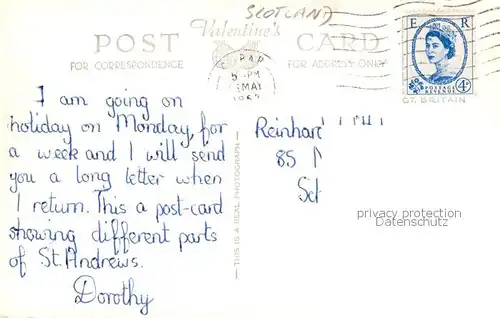 SCOTLAND
Valentine's
POST CARD
FOR CORRESPONDENCE
FOR ADDRESS ONLY
5-PM
MAY
E R
POSTAGE REVENUE
4D
GT. BRITAIN
I am going on
holiday on Monday, for
a week and I will send
you a long letter when
I return. This a post-card
showing different parts
of St. Andrews.
Dorothy
THIS IS A REAL PHOTOGRAPH
Reinhard
85
privacy protection
Datenschutz